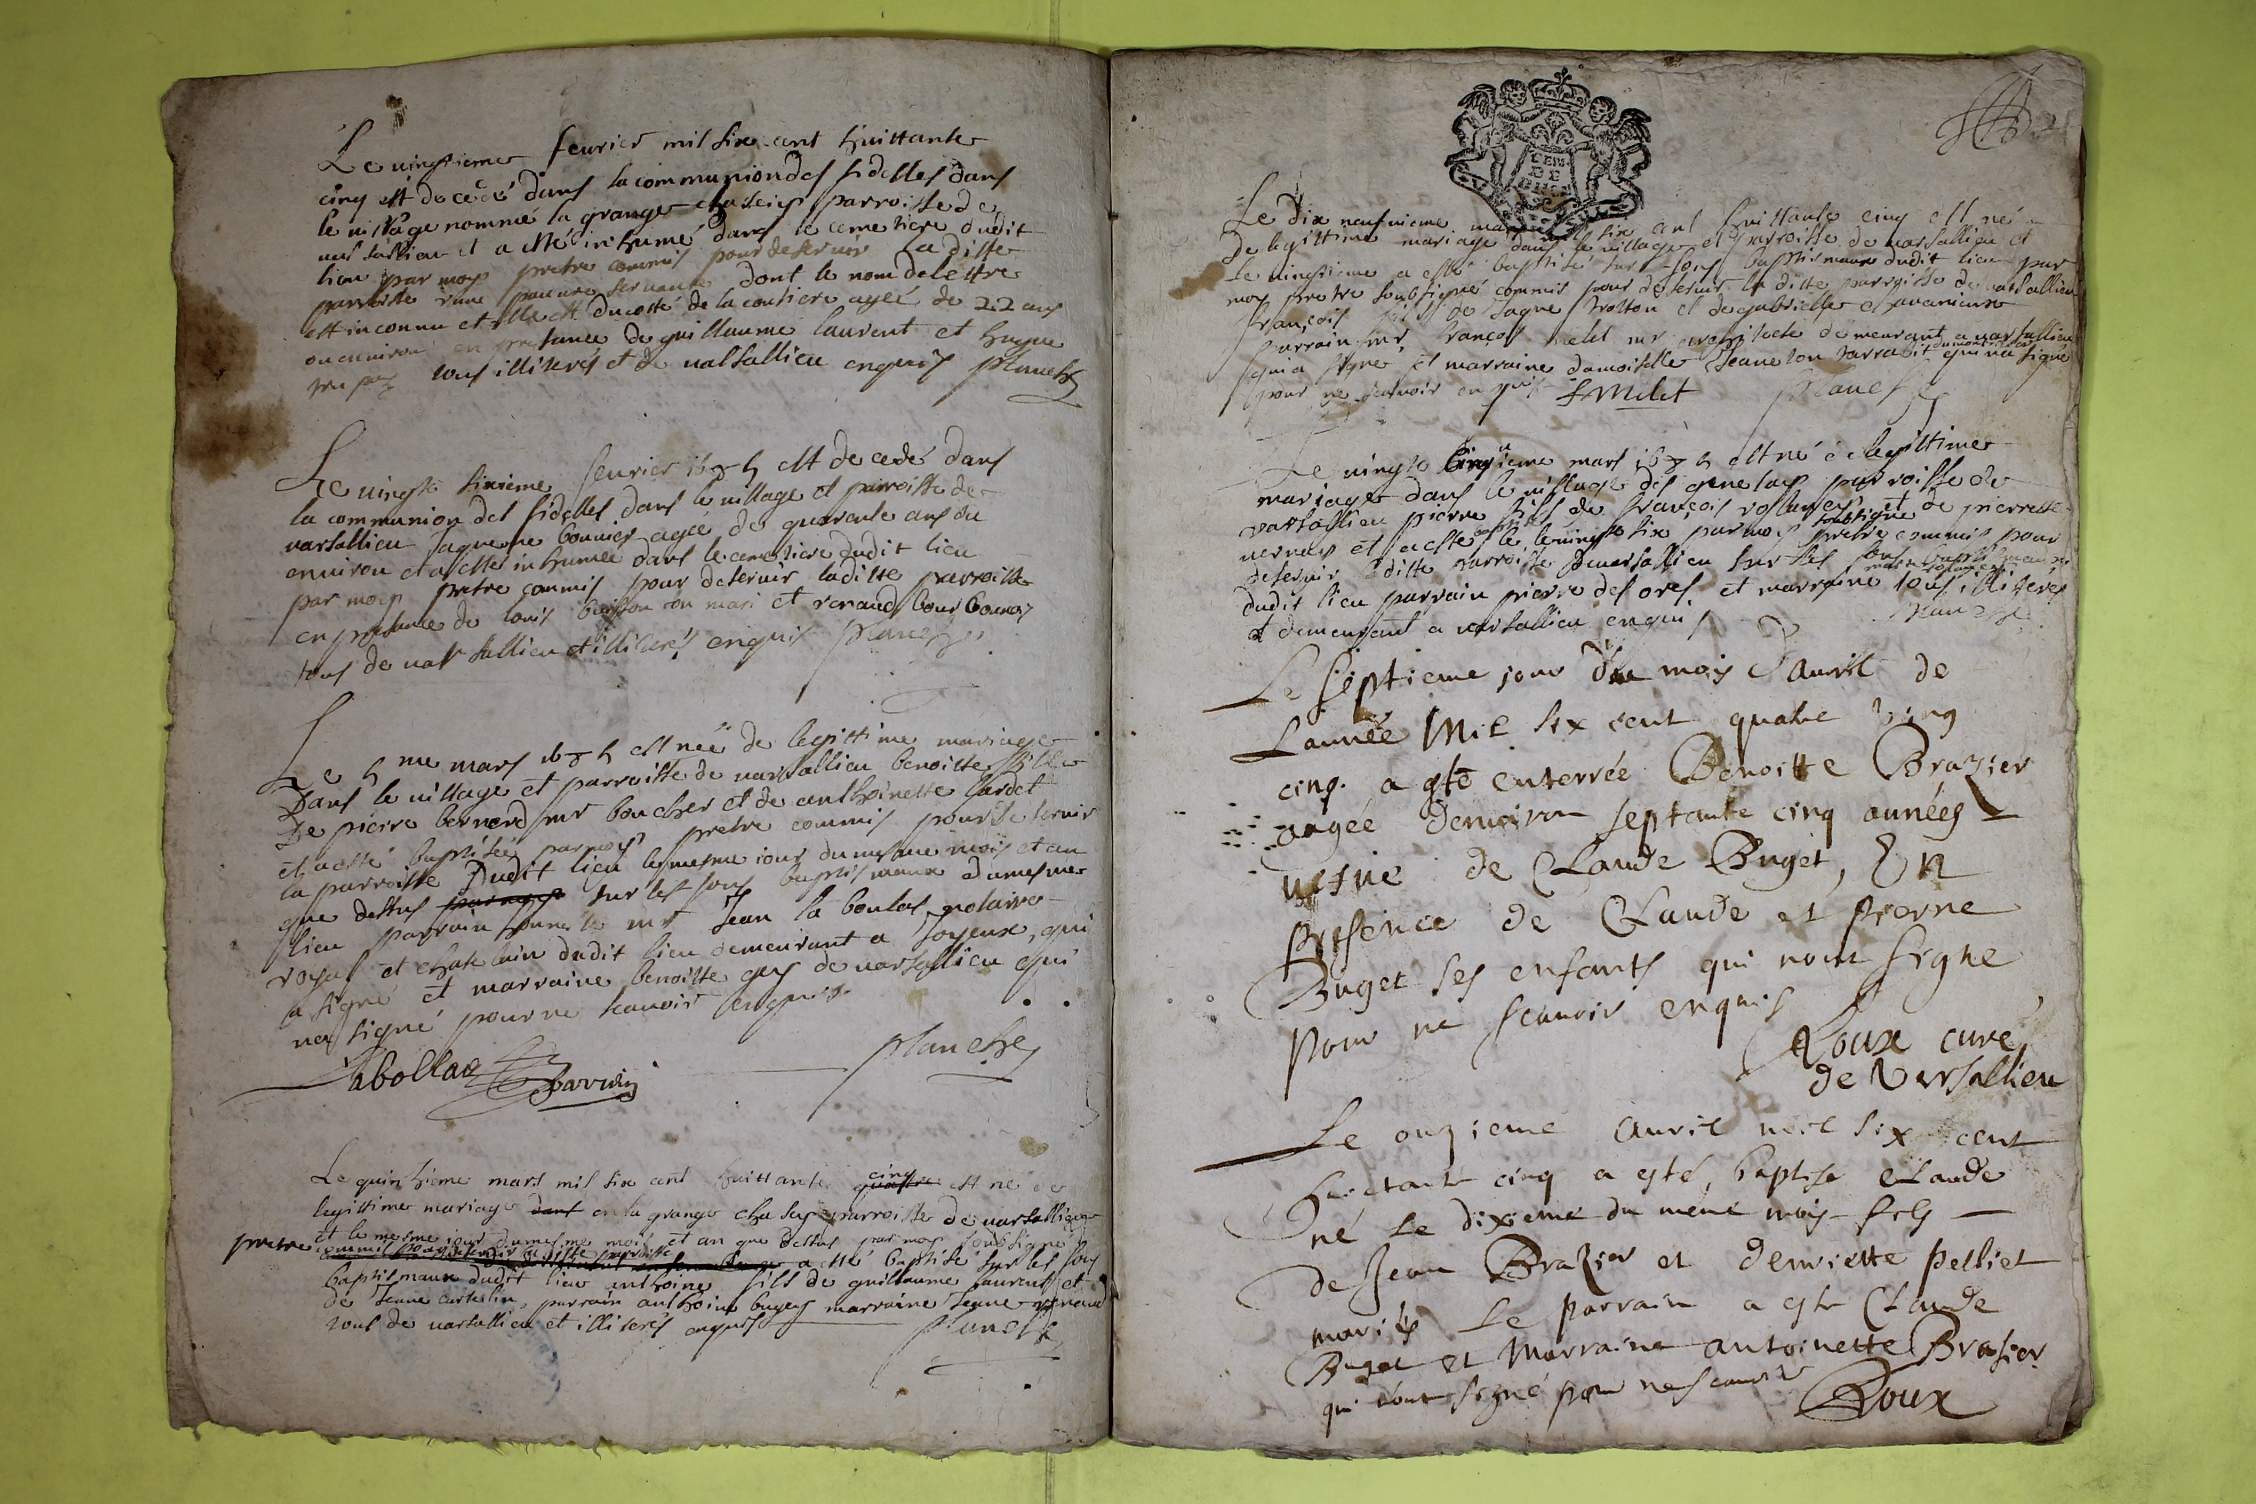 Le vingtieme fevrier mil six cent huittante
cinq est decedé dans la communion des fidelles dans
le village nommé la grange chaleins parroisse de
versallieu et a esté inhumé dans le cemetiere dudit
lieu par moy pretre commis pour deservir la ditte
parroisse une pauvre servante dont le nom de lettre
est inconnu et elle est du costé de la coutiere agée de 22 ans
ou environ en presance de guillaume laurent et
tous illiterés et de valsallieu enquis planche
Le vingte sixieme fevrier 1685 est decedé dans
la communion des fidelles dans le village et parroisse de
varsallieu Jaqueme bouvier agée de quarente ans ou
environ et a esté inhumée dans le cemetiere dudit lieu
par moy pretre commis pour deservir laditte parroisse
en presance de louis buisson son mari et renaud bourbonoy
tous de varsallieu et illiterés enquis planche
Le 5 me mars 1685 est née de legittime mariage
Dans le village et parroisse de varsallieu benoitte fille
De pierre bernard mr boucher et de anthoinette lardet
et a esté baptisée par moy pretre commis pour deservir
la parroisse Dudit lieu le mesme iour du mesme mois et an
que dessus sur les fons baptismaux du mesme
lieu parrain honneste mr Jean la boulas notaire
royal et chatelain dudit lieu demeurant a Joyeux, qui
a signé et marraine benoitte guy de varsallieu qui
na signé pour ne scavoir enquis
Labollas parrin planche
Le quinzieme mars mil six cent huittante cinq est né de
legittime mariage dans en la grange chalay parroisse de varsallieu
et le mesme iour du mesme mois et an que dessus par moy soubsigné
pretre commis pour deservir la ditte parroisse a esté baptisé sur les fons
baptismaux dudit lieu anthoine fils de guillaume laurent et
de Jeane curtelin, parrain anthoine bugey marraine Jeane renaud
tous de varsallieu et illiterés enquis planche
Le dix neufvieme mars mil six cent huittante cinq est né
De legittime mariage dans le village et parroisse de varsallieu et
le vingtieme a esté baptisé sur les fons baptismaux dudit lieu par
moy pretre soubsigné commis pour deservir la ditte parroisse de varsallieu
françois fils de Jaque et de gabrielle
parrain mr françois milet mr architecte demeurant a varsallieu
qui a signé et marraine damoiselle Jeane qui na signé
pour ne scavoir enquis F Milet planche
Le vingte cinquieme mars 1685 est né de legittime
mariage dans le village des genetay parroisse de
varsallieu pierre fils de françois et de pierrette
vernay et a esté baptisé le vingte six par moy soubsigné pretre commis pour
deservir laditte parroisse de varsallieu sur les fons baptismaux
dudit lieu parrain pierre des ores et marraine tous illiterés
et demeurant a varsallieu enquis planche
Le septieme jour du mois d'avril de
L'année Mil six cent quatre vingt
cinq a este enterrée Benoitte Brazier
aagée d'environ septante cinq années
vefve de Claude Buget, En
presence de Claude et pierre
Buget ses enfants qui n'ont signé
pour ne scavoir enquis
Roux curé
de Versallieu
Le onzieme avril mil six cent
huictante cinq a esté baptisé Claude
né le dixieme du meme mois fils
de Jean Brazier et denriette pelliet
mariés Le parrain a este Claude
Buget et Marraine antoinette Brasier
qui n'ont signé pour ne scavoir
Roux